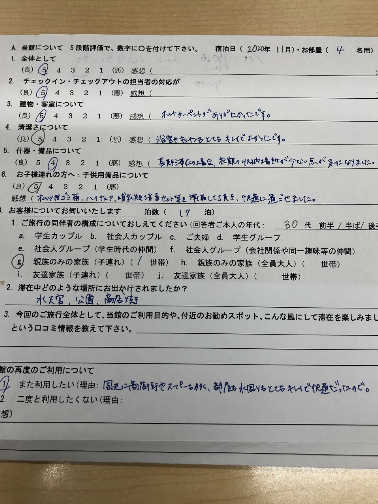 A. 当館について 5段階評価で、数字に○を付けて下さい。 宿泊日(2020年 11月)・お部屋( 4 名用)
1. 全体として
(良) 5 4 3 2 1 (悪) 感想(
2. チェックイン・チェックアウトの担当者の対応が
(良) 5 4 3 2 1 (悪) 感想(
3. 建物・客室について
(良) 5 4 3 2 1 (悪) 感想( ホットカーペットがありがたかったです。
4. 清潔さについて
(良) 5 4 3 2 1 (悪) 感想(
5. 什器・備品について
(良) 5 4 3 2 1 (悪) 感想(
6. お子様連れの方へ・子供用備品について
(良) 5 4 3 2 1 (悪)
感想(
お客様についてお伺いいたします 泊数( 17 泊)
1. ご旅行の同伴者の構成についておしえてください(回答者ご本人の年代: 30 代 前半/半ば/後半
a. 学生カップル b. 社会人カップル c. ご夫婦 d. 学生グループ
e. 社会人グループ(学生時代の仲間) f. 社会人グループ(会社関係や同一趣味等の仲間)
g. 親族のみの家族(子連れ)( 1 世帯) h. 親族のみの家族(全員大人)( 世帯)
i. 友達家族(子連れ)( 世帯) j. 友達家族(全員大人)( 世帯)
2. 滞在中どのような場所にお出かけされましたか?
水天宮、公園、商店街
3. 今回のご旅行全体として、当館のご利用目的や、付近のお勧めスポット、こんな風にして滞在を楽しみました
という口コミ情報を教えて下さい。
館の再度のご利用について
1 また利用したい(理由: 周辺に商店街やスーパーもあり、部屋も水回りもとてもキレイで快適だったので。
2 二度と利用したくない(理由:
想)